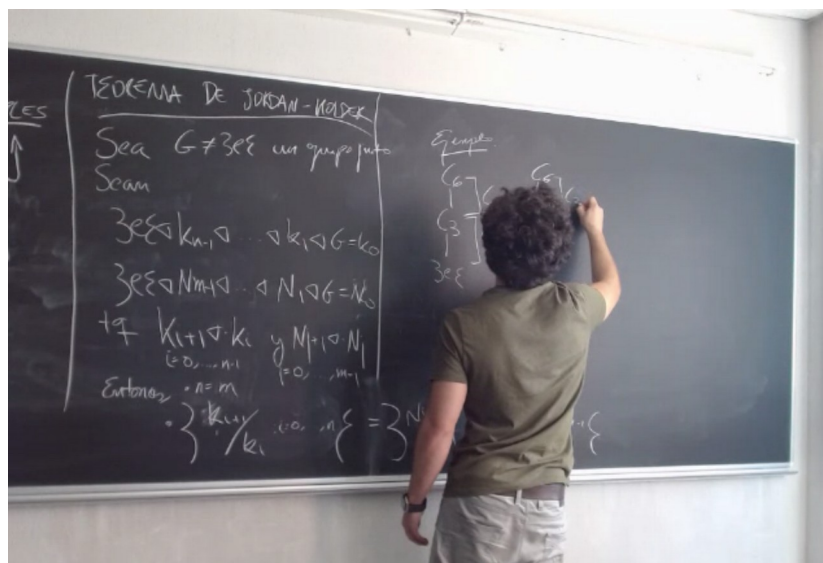 RES
TEOREMA DE JORDAN-HOLDER
Sea G≠}e{ un grupo finito
Sean
}e{◁K_{n-1}◁...◁K_1◁G=K_0
}e{◁N_{m-1}◁...◁N_1◁G=N_0
tq K_{i+1}◁·K_i y N_{j+1}◁·N_j
i=0,...,n-1 j=0,...,m-1
Entonces · n=m
· }K_{i+1}/K_i i=0,...,n{ = }N
Ejemplo
C_6 C_6
C_3
}e{